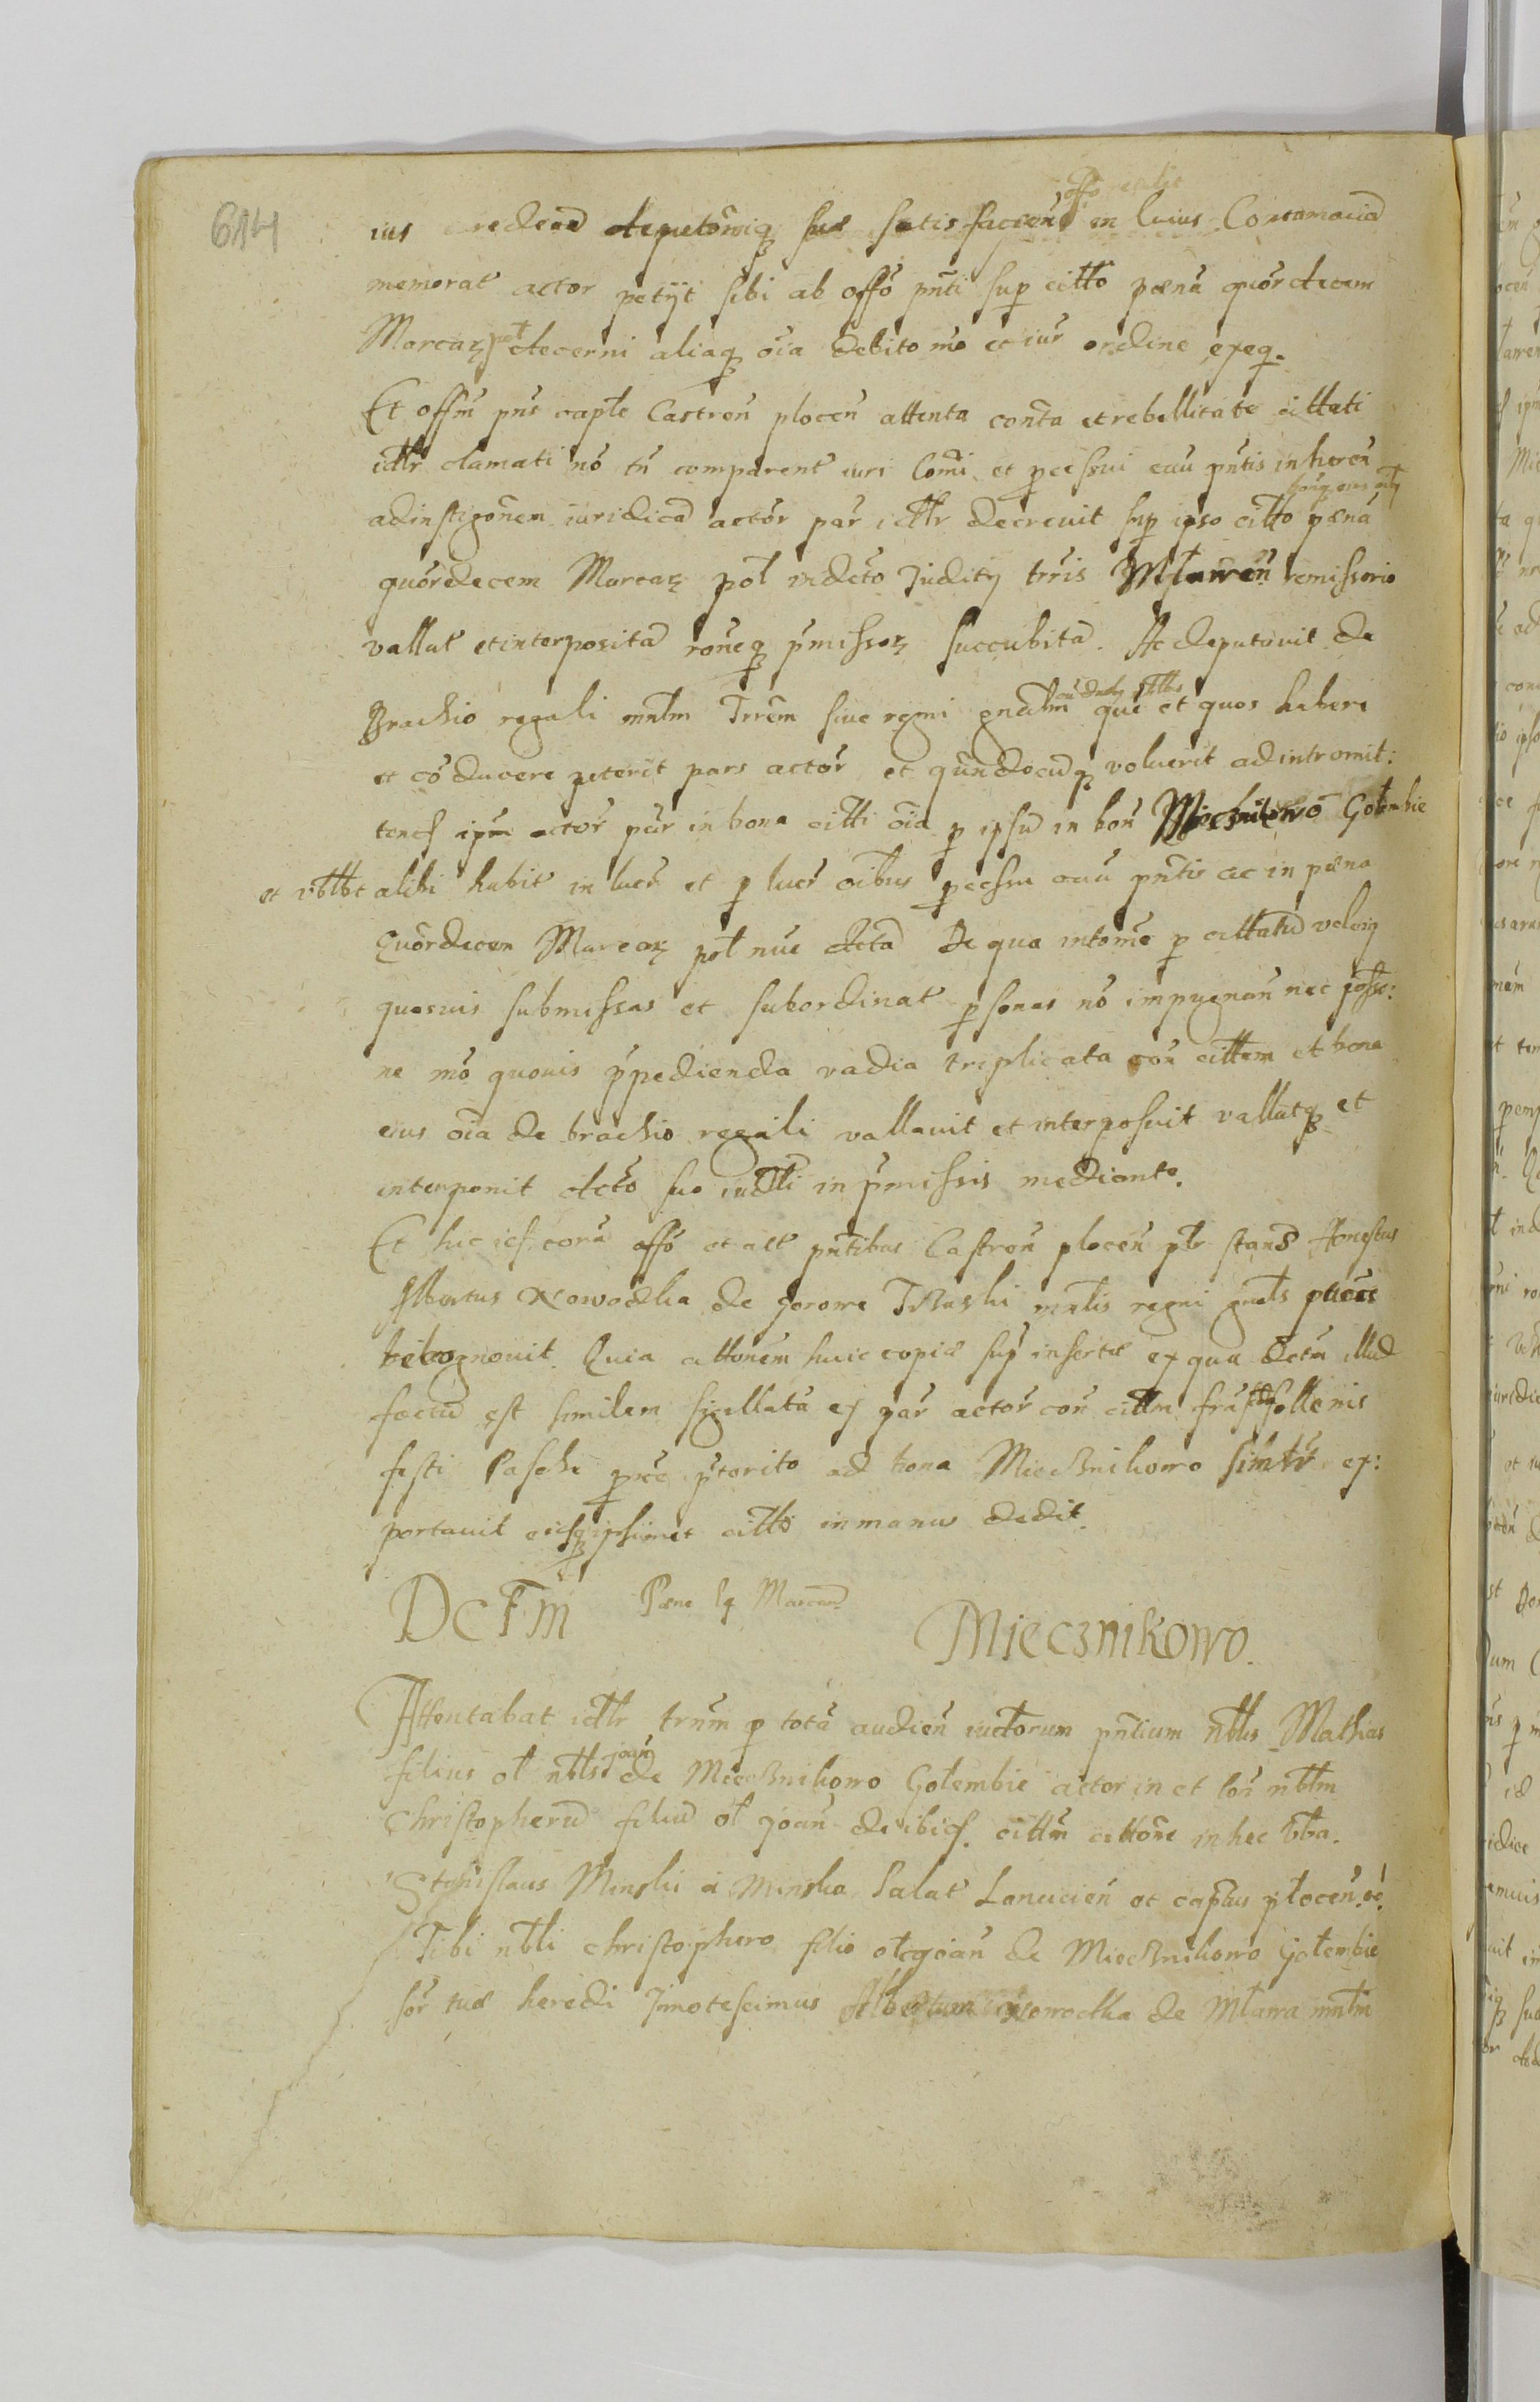 614
offo
ius credead deputoniq suae satisfacien in huius Contamacia
memorat actor petijt sibi ab offo pnti sup citto paena quordecem
Marcarz pol decerni aliaq oia debito mo et iur ordine exeq.
Et offm pns captle Castren plocen attenta conta et rebellitate cittati
idlr clamati no tn comparent iuri Comi et pcessui cau pntis inheren
adinstigonem iuridica actor par idlr decrevit sup ipso citto paena
quordecem Marcarz pol indeto Judity trris Mlawen remissorio
vallat et interposita roneq pmissorz succubita. Ac deputavit de
Brachio regali mntm Trrem sive regni gnalm que et quos habere
et coducere peterit pars actor et qundocuq voluerit ad intromit:
tend ipm actor par in bona citti oia p ipsu in bon Miecznikowo Golembie
et vbtbt alibi habit in lucr et p lucr oibus pcessu cau pntis ac in paena
Quordecem Marcarz pol nuc dcta De qua intome p cittatu veleiq
quosuis submissas et subordinat psonas no impugnan nec posse:
ne mo quovis ppediencda vadia triplicata con cittem et bona
eius oia de brachio regali vallavit et interposuit vallatq et
interponit dcto suo iudli in pmissis mediante.
Et hic id cora offo et act pntibus Castren plocen ptr stans Honestus
Albertus Nowodka de gorome mntis regni gnals puces
recognovit. Quia cittonem huic copiae sup insertae ex qua dctm illud
factu est similem sigillata ex par actor con cittm solleniis
festi Paschae pxe pterito ad bona Miecznikowo simtr ex:
portavit eisq ipsimet citto in manus dedit.
DCTM Paena 14 Marcar Miecznikowo.
Attentabat idlr trnm p tota audien iuctorum pntium nbtlis Mathias
filius ol nbtlis joan de Mieczknikowo Golembie actor in et con nbtlm
Christopheru filiu ol joan de ibid. cittm cittone in hec vba.
Stanislaus Minski a Minsko Palat Lancicien et captus plocen. etc
Tibi nbtli christophero filio olt joan de Miecznikowo Golembie
sor tuae heredi Jnnotescimus Albertum Nowodka de Mlawa mntm